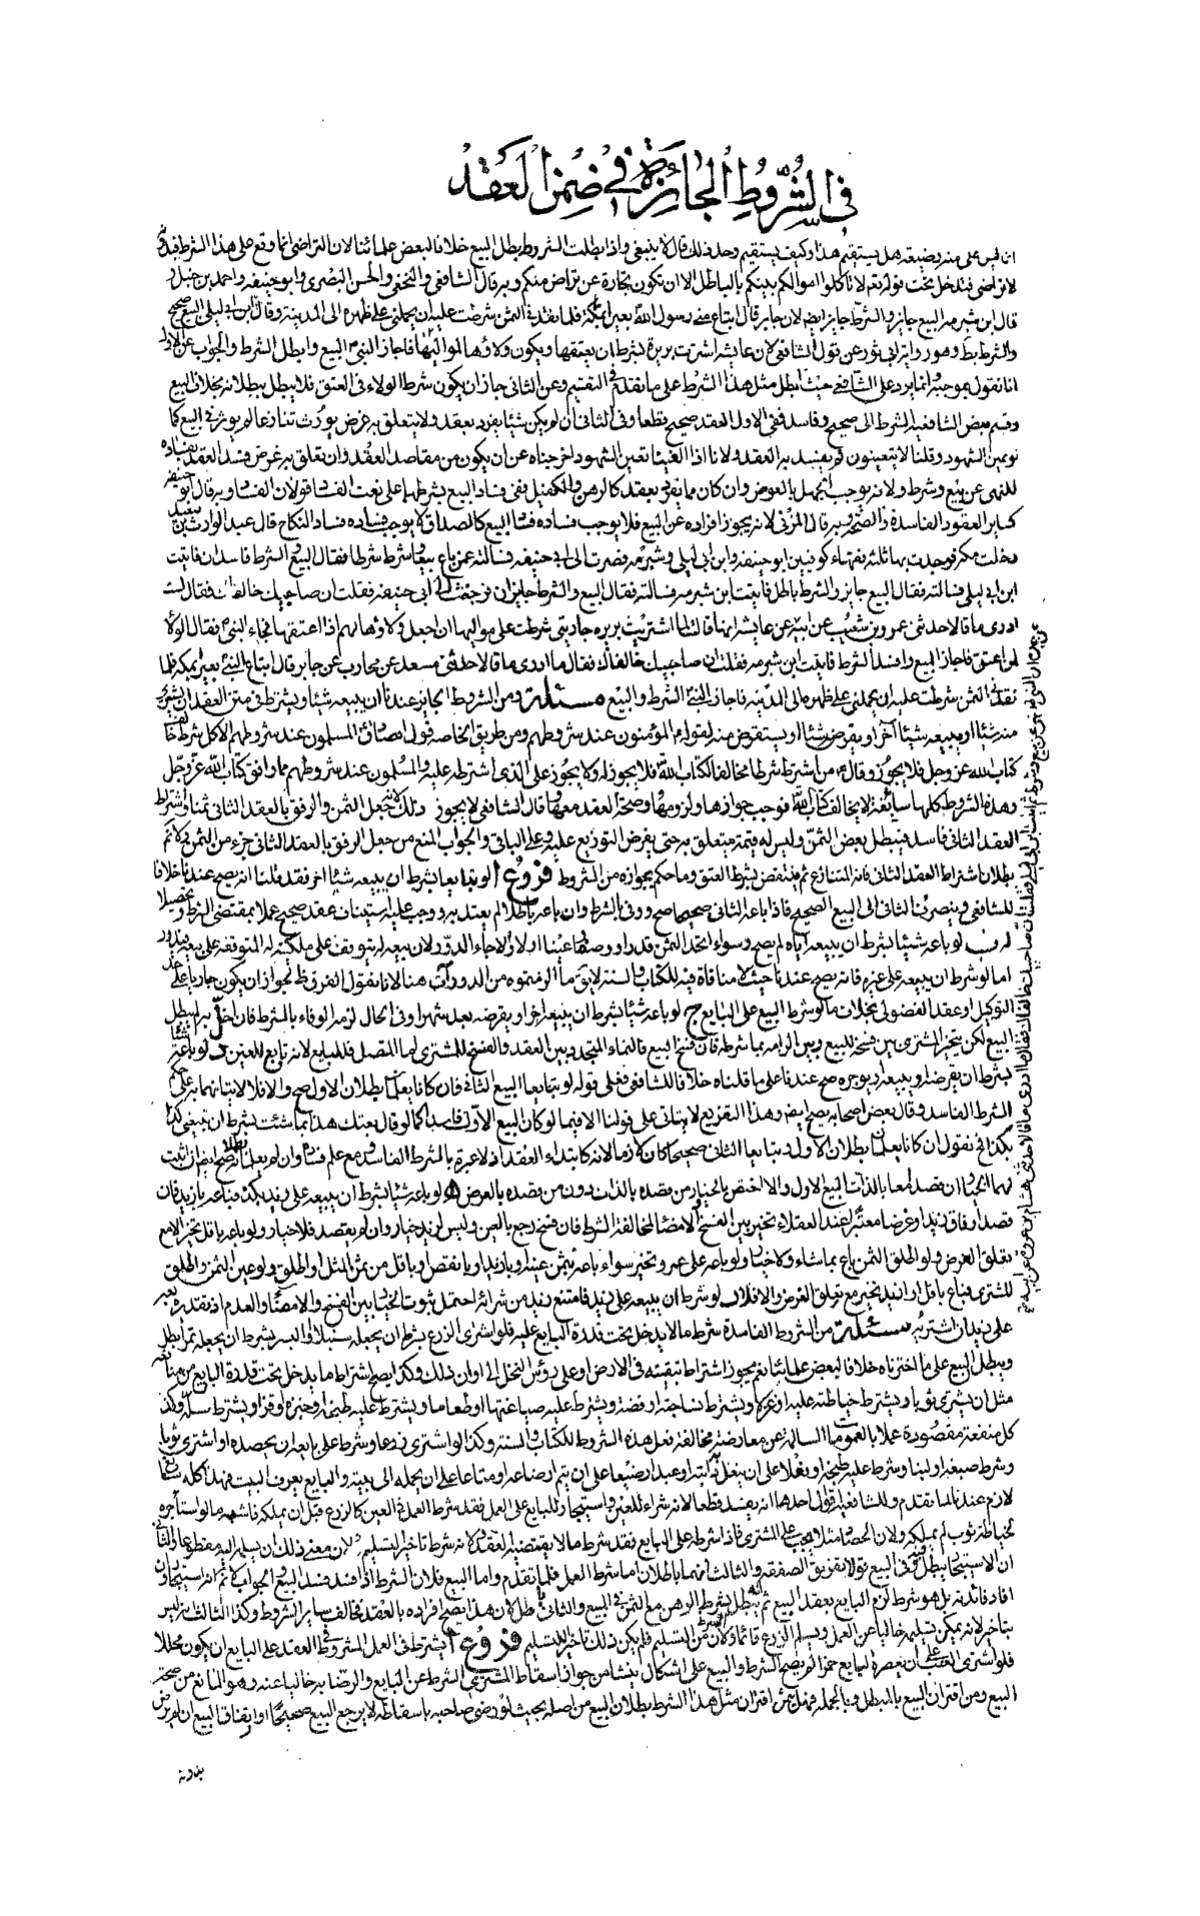 في الشروط الجائزة في ضمن العقد
ان ليس على منه وضيعة هل يستقيم هذا وكيف يستقيم وحد ذلك قال لا ينبغي واذا بطلت الشروط بطل البيع خلافا لبعض علمائنا لان التراضي انما وقع على هذا الشرط فبدونه
لا تراضي فتدخل تحت قوله تعالى لا تاكلوا اموالكم بينكم بالباطل الا ان تكون تجارة عن تراض منكم وبه قال الشافعي والنخعي والحسن البصري وابو حنيفه واحمد بن حنبل
قال ابن شبرمه البيع جايز والشرط جايز ايضا لان جابر قال ابتاع مني رسول الله بعيرا بمكة فلما نقدني الثمن شرطت عليه ان يحملني على ظهره الى المدينة وقال ابن ابي ليلى البيع صحيح
والشرط بط وهو رواية ابي ثور عن قول الشافعي لان عايشه اشترت بريرة بشرط ان يعتقها ويكون ولاؤها لمواليها فاجاز النبي البيع وابطل الشرط والجواب عن الاول
انا نقول بموجبه وانما يرد على الشافعي حيث ابطل مثل هذا الشرط على ما تقدم في التقسيم وعن الثاني جاز ان يكون شرط الولاء في العتق فلا يبطل ببطلانه بخلاف البيع
وقسم بعض الشافعية الشرط الى صحيح وفاسد ففي الاول العقد صحيح قطعا وفي الثاني ان لم يكن شيئا يفرد بعقد ولا يتعلق به غرض يورث تنازعا لم يوثر في البيع كما
لو عين الشهود وقلنا لا يتعينون لم يفسد به العقد ولانا اذا الغينا تعين الشهود اخرجناه عن ان يكون من مقاصد العقد وان تعلق به غرض فسد العقد بفساده
للنهي عن بيع وشرط ولانه يوجب الجهل بالعوض وان كان مما يفرد بعقد كالرهن والكفيل ففي فساد البيع بشرطهما على نعت الفساد قولان الفساد وبه قال ابو حنيفه
كساير العقود الفاسدة والصحة وبه قال المزني لانه يجوز افراده عن البيع فلا يوجب فساده فساد البيع كالصداق لا يوجب فساده فساد النكاح قال عبد الوارث بن سعيد
دخلت مكة فوجدت بها ثلثة فقهاء كوفيين ابو حنيفه وابن ابي ليلى وشبرمه فصرت الى ابي حنيفه فسالته عمن باع بيعا وشرط شرطا فقال البيع والشرط فاسدان فاتيت
ابن ابي ليلى فسالته فقال البيع جايز والشرط باطل فاتيت ابن شبرمه فسالته فقال البيع والشرط جايزان فرجعت الى ابي حنيفه فقلت ان صاحبيك خالفاك فقال لست
ادري ما قالا حدثني عمرو بن شعيب عن ابيه عن عايشه انها قالت لما اشتريت بريره جاريتي شرطت على مواليها ان اجعل ولاؤها لهم اذا اعتقتها فجاء النبي فقال الولاء
لمن اعتق فاجاز البيع وافسد الشرط فاتيت ابن شبرمه فقلت ان صاحبيك خالفاك فقال ما ادري ما قالا حدثني مسعر عن محارب عن جابر قال ابتاع النبي بعيرا بمكة فلما
نقدني الثمن شرطت عليه ان يحملني على ظهره الى المدينه فاجاز النبي الشرط والبيع مسئلة ومن الشروط الجايزة عندنا ان يبيعه شيئا ويشترط في متن العقد ان يشتري
منه شيئا او يبيعه شيئا آخر او يقرضه شيئا او يستقرض منه لقوله المؤمنون عند شروطهم ومن طريق الخاصه قول الصادق المسلمون عند شروطهم الا كل شرط خالف
كتاب الله عز وجل فلا يجوز وقال من اشترط شرطا مخالفا لكتاب الله فلا يجوز له ولا يجوز على الذي اشترط عليه والمسلمون عند شروطهم مما وافق كتاب الله عز وجل
وهذه الشروط كلها سايغة لا يخالف كتاب الله فوجب جوازها ولزومها وصحة العقد معها وقال الشافعي لا يجوز ذلك لانه جعل الثمن والرفق بالعقد الثاني ثمنا واشتراط
العقد الثاني فاسد فبطل بعض الثمن وليس له قيمة متعلق به حتى يفرض التوزيع عليه وعلى الباقي والجواب المنع من جعل الرفق بالعقد الثاني جزء من الثمن ولا نم
بطلان اشتراط العقد الثاني فانه المتنازع ثم ينتقض بشرط العتق وما حكم بجوازه من الشروط فروع ا لو تبايعا بشرط ان يبيعه شيئا اخر فقد قلنا انه يصح عندنا خلافا
للشافعي وينصرف الثاني الى البيع الصحيح فاذا باعه الثاني صحيحا صح ووفى بالشرط وان باعه باطلا لم يعتد به ووجب عليه استيناف عقد صحيح عملا بمقتضى الشرط وتحصيلا
له ب لو باعه شيئا بشرط ان يبيعه اياه لم يصح وسواء اتحد الثمن قدرا ووصفا وعينا او لا والا جاء الدور لان بيعه له يتوقف على ملكيته له المتوقفه على بيعه فيدور
اما لو شرط ان يبيعه على غيره فانه يصح عندنا حيث لا منافاة فيه للكتاب والسنة لا يق ما الزمتموه من الدور آت هنا لانا نقول الفرق ظ لجواز ان يكون جاريا على حد
التوكيل او عقد الفضولي بخلاف ما لو شرط البيع على البايع ج لو باعه شيئا بشرط ان يبيعه اخر او يقرضه بعد شهر او في الحال لزمه الوفاء بالشرط فان اخل به لم يبطل
البيع لكن يتخير المشتري بين فسخه للبيع وبين الزامه بما شرطه فان فسخ البيع فالنماء المتجدد بين العقد والفسخ للمشتري اما المتصل فللبايع لانه تابع للعين د لو باعه شيئا
بشرط ان يقرضه او يبيعه او يوجره صح عندنا على ما قلناه خلافا للشافعي فعلى قوله لو تبايعا البيع الثاني فان كانا يعلمان بطلان الاول صح والا فلا لاتيانهما به على حكم
الشرط الفاسد وقال بعض اصحابه يصح ايضا وهذا التفريع لا يتاتى على قولنا الا فيما لو كان البيع الاول فاسدا كما لو قال بعتك هذا بما شئت بشرط ان تبيعني كذا
بكذا فح نقول ان كانا يعلمان بطلان الاول وتبايعا الثاني صحيحا كان لازما لانه كابتداء العقد اذ لا عبرة بالشرط الفاسد مع علم فساده وان لم يعلما بطلانه صح ايضا لكن اثبت
لهما الخيار ان قصدا معا بالذات البيع الاول والا اختص بالخيار من قصده بالذات دون من قصده بالعرض ه لو باعه شيئا بشرط ان يبيعه على زيد بكذا فباعه بازيد فان
قصد ارفاق زيد او غرضا معتبرا عند العقلاء تخير بين الفسخ والامضاء لمخالفة الشرط فان فسخ رجع بالعين وليس لزيد خيار وان لم يقصد فلا خيار ولو باعه باقل تخير الا مع
تعلق الغرض ولو اطلق الثمن باع بما شاء ولا خيار ولو باعه على عمرو تخير سواء باعه بثمن عينه او بازيد او بانقص او باقل من ثمن المثل او اطلق ولو عين الثمن واطلق
المشتري فباع باقل او ازيد تخير مع تعلق الغرض والا فلا و لو شرط ان يبيعه على زيد فامتنع زيد من شرائه احتمل ثبوت الخيار بين الفسخ والامضاء والعدم اذ تقديره بعه
على زيد ان اشتراه مسئلة من الشروط الفاسدة شرط ما لا يدخل تحت قدرة البايع عليه فلو اشترى الزرع بشرط ان يجعله سنبلا او البسر بشرط ان يجعله تمرا بطل
ويبطل البيع على ما اخترناه خلافا لبعض علمائنا نعم يجوز اشتراط تبقيته في الارض او على رؤس النخل الى اوان ذلك وكذا يصح اشتراط ما يدخل تحت قدرة البايع من منافعه
مثل ان يشتري ثوبا ويشترط خياطته عليه او غزلا ويشترط نساجته او فضة ويشترط عليه صياغتها او طعاما ويشترط عليه طبخه او خبزه او قزا ويشترط وكذا
كل منفعة مقصودة عملا بالعمومات السالمة عن معارضة مخالفة فعل هذه الشروط للكتاب والسنة وكذا لو اشترى زرعا وشرط على بايعه ان يحصده او اشترى ثوبا
وشرط صبغه او لبنا وشرط عليه طبخه او نعلا على ان ينعل به دابته او عبدا رضيعا على ان يتم ارضاعه او متاعا على ان يحمله الى بيته والبايع يعرف البيت فهذا كله سايغ
لازم عندنا لما تقدم وللشافعية اقوال احدها انه يفسد قطعا لانه شراء للعين واستيجار للبايع على العمل فقد شرط العمل في العين كالزرع قبل ان يملكه فاشبه ما لو استأجره
لخياطة ثوب لم يملكه ولان الحصاد مثلا يجب على المشتري فاذا شرطه على البايع فقد شرط ما لا يقتضيه العقد ولانه شرط تاخير التسليم لان معنى ذلك ان يسلمه اليه مقطوعا والثاني
ان الاستيجار يبطل وفي البيع قولا تفريق الصفقة والثالث انهما باطلان اما شرط العمل فلما تقدم واما البيع فلان الشرط اذا فسد فسد البيع والجواب لا نم انه استيجار وان
افاد فائدته بل هو شرط لزم البايع بعقد البيع ثم يبطل بشرط الرهن مع الثمن في البيع والثاني باطل لان هذا يصح افراده بالعقد بخالف ساير الشروط وكذا الثالث فليس
بتاخير لانه يمكن تسليمه خاليا عن العمل ويسلم الزرع قائما ولان الشرط من التسليم فلم يكن ذلك تاخير التسليم فروع ا يشترط في العمل المشروط في العقد على البايع ان يكون محللا
فلو اشترى العنب على ان يعصره البايع خمرا لم يصح الشرط والبيع على اشكال ينشا من جواز اسقاط المشتري الشرط عن البايع والرضا به خاليا عنه وهو المانع من صحة
البيع ومن اقتران البيع بالمبطل وبالجملة فهل يثمر اقتران مثل هذا الشرط بطلان البيع من اصله بحيث لو رضي صاحبه باسقاطه لا يرجع البيع صحيحا او ايقاف البيع ان لم يرض
بدونه